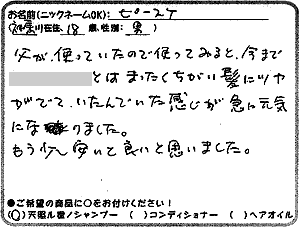 お名前(ニックネームOK): ピースケ
(神奈川在住, 18歳、性別: 男)
父が、使っていたので使ってみると、今まで
とはまったくちがい髪にツヤ
がでて、いたんでいた感じが急に元気
になりました。
もう少し安いと良いと思いました。
●ご希望の商品に○をお付けください!
(○)天照ル雲ノシャンプー ( )コンディショナー ( )ヘアオイル